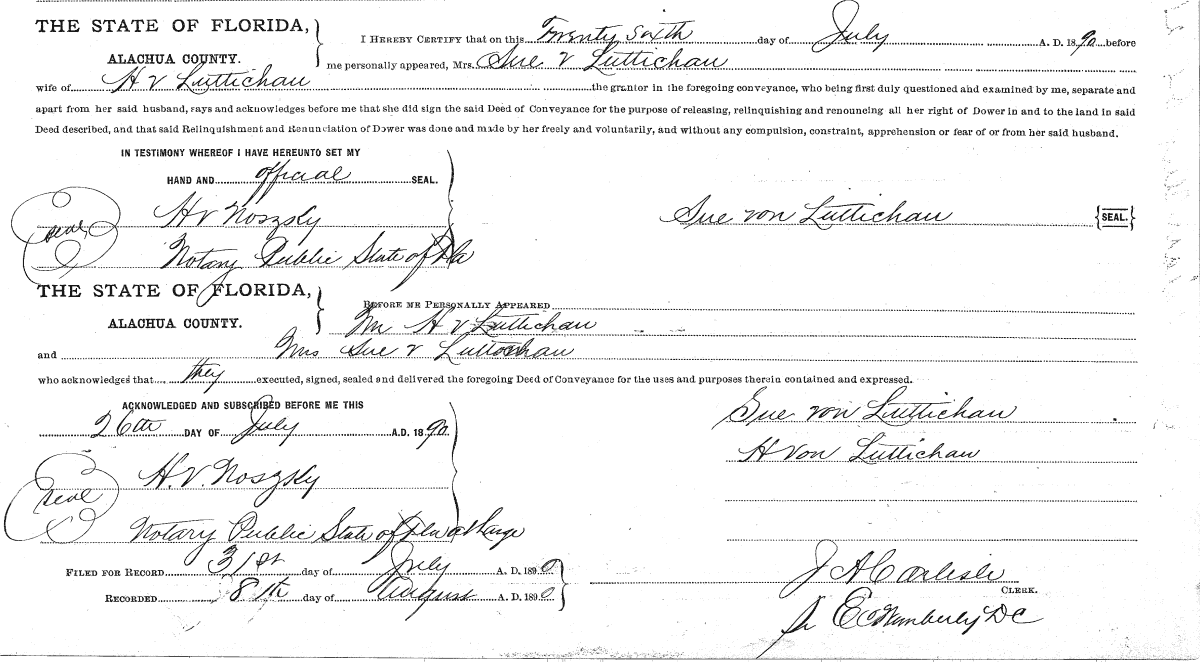 THE STATE OF FLORIDA,
ALACHUA COUNTY.
I HEREBY CERTIFY that on this Twenty sixth day of July A. D. 1890 before
me personally appeared, Mrs. Sue v Luttichau
wife of H v Luttichau the grantor in the foregoing conveyance, who being first duly questioned and examined by me, separate and
apart from her said husband, says and acknowledges before me that she did sign the said Deed of Conveyance for the purpose of releasing, relinquishing and renouncing all her right of Dower in and to the land in said
Deed described, and that said Relinquishment and Renunciation of Dower was done and made by her freely and voluntarily, and without any compulsion, constraint, apprehension or fear of or from her said husband.
IN TESTIMONY WHEREOF I HAVE HEREUNTO SET MY
HAND AND official SEAL.
seal H v Noszsky
Sue von Luttichau {SEAL.}
Notary Public State of Fla
THE STATE OF FLORIDA,
ALACHUA COUNTY.
BEFORE ME PERSONALLY APPEARED
Mr H v Luttichau
and Mrs Sue v Luttichau
who acknowledges that they executed, signed, sealed and delivered the foregoing Deed of Conveyance for the uses and purposes therein contained and expressed.
ACKNOWLEDGED AND SUBSCRIBED BEFORE ME THIS
26th DAY OF July A.D. 1890
Sue von Luttichau
H von Luttichau
seal H. v. Noszsky
Notary Public State of Fla at Large
FILED FOR RECORD 31st day of July A. D. 1890
RECORDED 8th day of August A. D. 1890
J A Carlisle
CLERK.
Wimberly DC